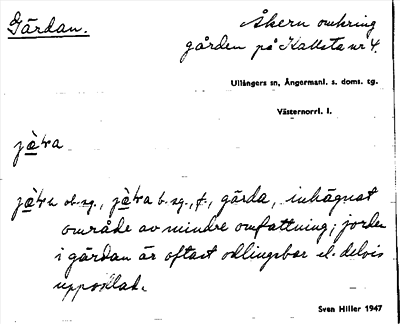 Gärdan.
Åkern omkring
gården på Kallsta nr 4.
Ullångers sn, Ångermanl. s. doms. tg.
Västernorrl. l.
ob. sg., b. sg., f., gärda, inhägnat
område av mindre omfattning; jorden
i gärdan är oftast odlingsbar el. delvis
uppodlad.
Sven Hiller 1947